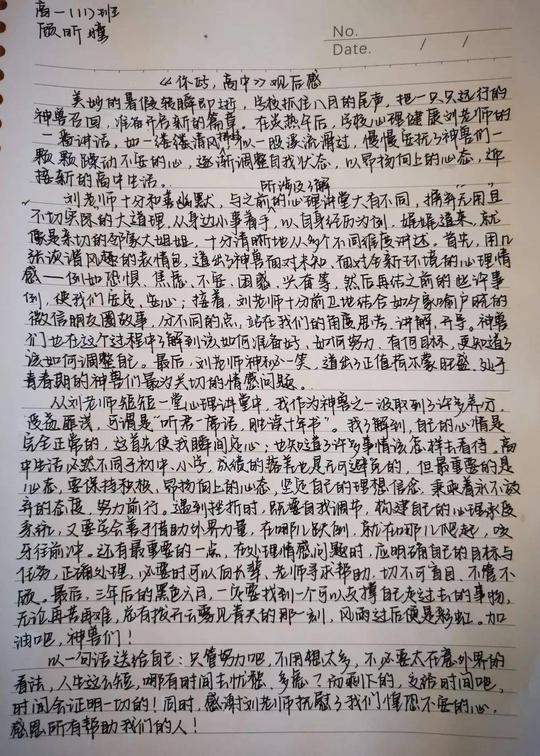 高一(11)班
顾昕瞳
No.
Date. / /
《你时，高中》观后感
美妙的暑假转瞬即逝，学校抓住八月的尾声，把一只只远行的
神兽召回，准备开启新的篇章。在炎热午后，学校心理健康刘老师的
一番讲话，如一缕缕清风，似一股溪流滑过，慢慢安抚了神兽们一
颗颗躁动不安的心，逐渐调整自我状态，以昂扬向上的心态，迎
接新的高中生活。
刘老师十分和蔼幽默，与之前所涉及了解的心理讲堂大有不同，摒弃无用且
不切实际的大道理，从身边小事着手，以自身经历为例，娓娓道来，就
像是亲切的邻家大姐姐，十分清晰地从多个不同维度讲述。首先，用几
张诙谐风趣的表情包，道出了神兽面对未知、面对全新环境的心理情
感——例如恐惧、焦虑、不安、困惑、兴奋等，然后再结之前的些许事
例，使我们定还、安心；接着，刘老师十分前卫地结合如今家喻户晓的
微信朋友圈故事，分不同的点，站在我们的角度思考、讲解、开导。神兽
们也在这个过程中了解到该如何准备好，如何努力，有何目标，更知道了
该如何调整自己。最后，刘老师神秘一笑，道出了正值荷尔蒙旺盛、处于
青春期的神兽们最为关切的情感问题。
从刘老师短短一堂心理讲堂中，我作为神兽之一汲取到了许多养分，
受益匪浅，可谓是“听君一席话，胜读十年书”。我了解到，自己的心情是
完全正常的，这首先使我瞬间定心；也知道了许多事情该怎样去看待。高
中生活必然不同于初中、小学，成绩的落差也是无可避免的，但最重要的是
心态，要保持积极、昂扬向上的心态，坚定自己的理想信念，秉乘着永不放
弃的态度，努力前行。遇到挫折时，既要自我调节，构建自己的心理承受
系统，又要学会善于借助外界力量，在哪儿跌倒，就在哪儿爬起，咬
牙往前冲。还有最重要的一点，在处理情感问题时，应明确自己的目标与
任务，正确处理，必要时可以向长辈、老师寻求帮助，切不可盲目、不管不
顾。最后，三年后的黑色六月，一定要找到一个可以支撑自己走过去的事物，
无论再苦再难，总有拨开云雾见青天的那一刻，风雨过后便是彩虹。加
油吧，神兽们！
以一句话送给自己：只管努力吧，不用想太多，不必要太在意外界的
看法，人生这么短，哪有时间去忧愁、多虑？而剩下的，交给时间吧，
时间会证明一切的！同时，感谢刘老师抚慰了我们惶恐不安的心，
感恩所有帮助我们的人！